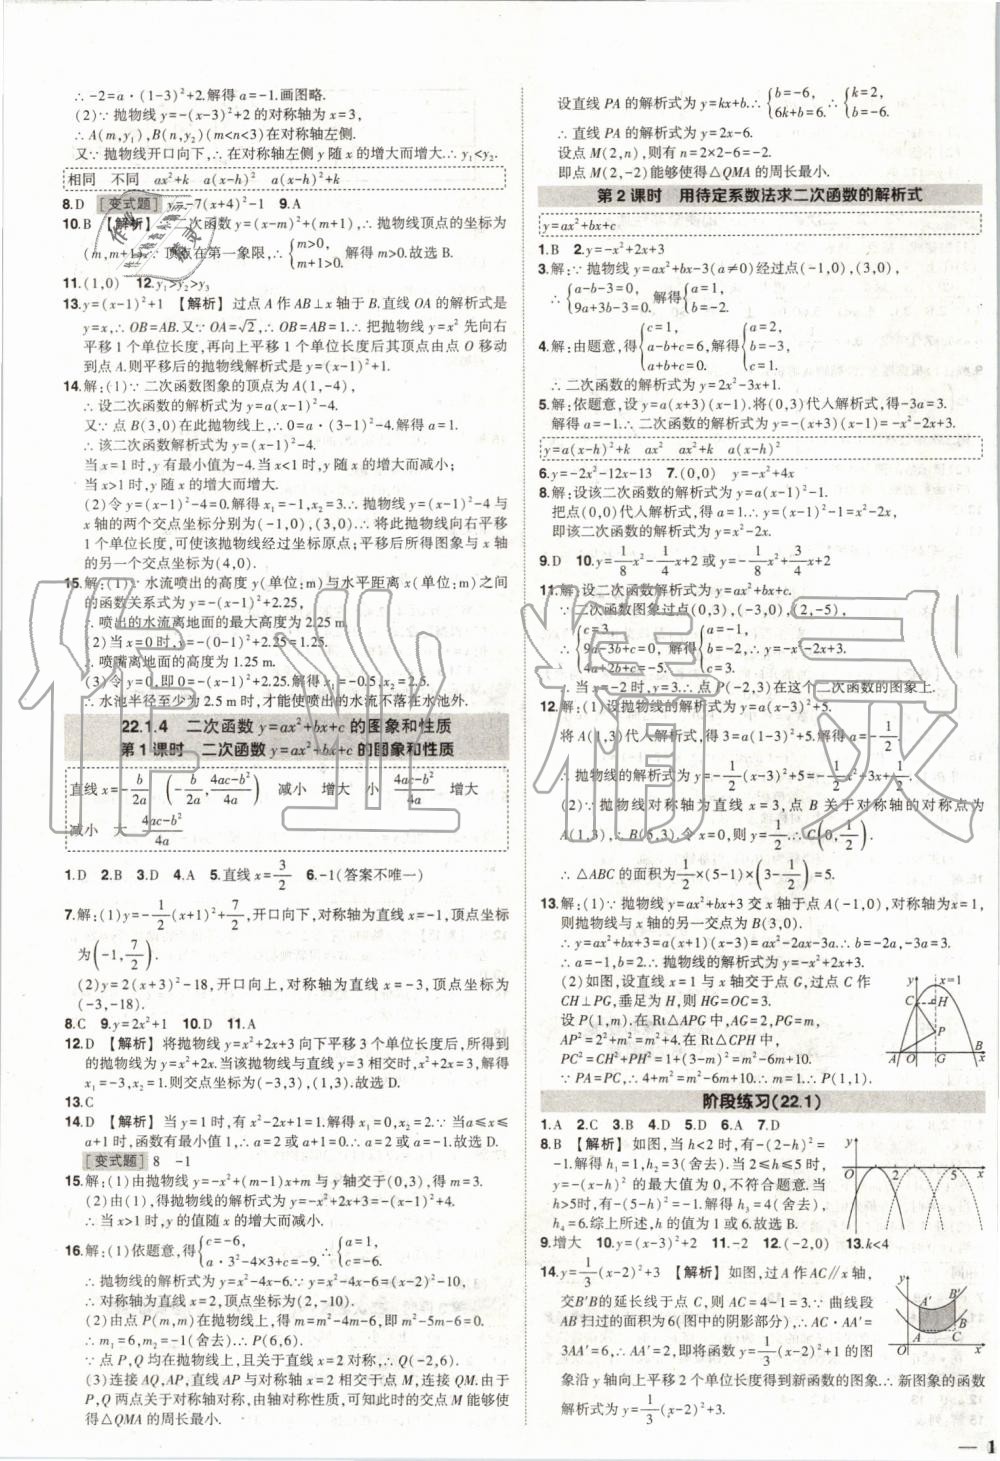 ∴-2=a·(1-3)²+2.解得a=-1.画图略.
(2)∵抛物线y=-(x-3)²+2的对称轴为x=3,
∴A(m,y₁),B(n,y₂)(m<n<3)在对称轴左侧.
又∵抛物线开口向下,∴在对称轴左侧y随x的增大而增大.∴y₁<y₂.
相同 不同 ax²+k a(x-h)² a(x-h)²+k
8.D [变式题] y=-7(x+4)²-1 9.A
10.B 【解析】∵二次函数y=(x-m)²+(m+1),∴抛物线顶点的坐标为
(m,m+1).∵顶点在第一象限,∴{m>0, m+1>0. 解得m>0.故选B.
11.(1,0) 12.y₁>y₂>y₃
13.y=(x-1)²+1 【解析】过点A作AB⊥x轴于B.直线OA的解析式是
y=x,∴OB=AB.又∵OA=√2,∴OB=AB=1.∴把抛物线y=x²先向右
平移1个单位长度,再向上平移1个单位长度后其顶点由点O移动
到点A.则平移后的抛物线解析式是y=(x-1)²+1.
14.解:(1)∵二次函数图象的顶点为A(1,-4),
∴设二次函数的解析式为y=a(x-1)²-4.
又∵点B(3,0)在此抛物线上,∴0=a·(3-1)²-4.解得a=1.
∴该二次函数的解析式为y=(x-1)²-4.
当x=1时,y有最小值为-4.当x<1时,y随x的增大而减小;
当x>1时,y随x的增大而增大.
(2)令y=(x-1)²-4=0.解得x₁=-1,x₂=3.∴抛物线y=(x-1)²-4与
x轴的两个交点坐标分别为(-1,0),(3,0).∴将此抛物线向右平移
1个单位长度,可使该抛物线经过坐标原点.平移后所得图象与x轴
的另一个交点坐标为(4,0).
15.解:(1)∵水流喷出的高度y(单位:m)与水平距离x(单位:m)之间
的函数关系式为y=-(x-1)²+2.25,
∴喷出的水流离地面的最大高度为2.25 m.
(2)当x=0时,y=-(0-1)²+2.25=1.25.
∴喷嘴离地面的高度为1.25 m.
(3)令y=0,即0=-(x-1)²+2.25.解得x₁=-0.5,x₂=2.5.
∴水池半径至少为2.5 m时,才能使喷出的水流不落在水池外.
22.1.4 二次函数y=ax²+bx+c的图象和性质
第1课时 二次函数y=ax²+bx+c的图象和性质
直线x=-b/2a (-b/2a, (4ac-b²)/4a) 减小 增大 小 (4ac-b²)/4a 增大
减小 大 (4ac-b²)/4a
1.D 2.B 3.D 4.A 5.直线x=3/2 6.-1(答案不唯一)
7.解:(1)y=-1/2(x+1)²+7/2,开口向下,对称轴为直线x=-1,顶点坐标
为(-1,7/2).
(2)y=2(x+3)²-18,开口向上,对称轴为直线x=-3,顶点坐标为
(-3,-18).
8.C 9.y=2x²+1 10.D 11.A
12.D 【解析】将抛物线y=x²+2x+3向下平移3个单位长度后,所得到
的抛物线为y=x²+2x.当该抛物线与直线y=3相交时,x²+2x=3,解得
x₁=-3,x₂=1.则交点坐标为(-3,3),(1,3).故选D.
13.C
14.D 【解析】当y=1时,有x²-2x+1=1.解得x₁=0,x₂=2.∵当a≤x≤
a+1时,函数有最小值1,∴a=2或a+1=0.∴a=2或a=-1.故选D.
[变式题] 8 -1
15.解:(1)由抛物线y=-x²+(m-1)x+m与y轴交于(0,3),得m=3.
(2)由(1),得抛物线的解析式为y=-x²+2x+3=-(x-1)²+4.
∴当x>1时,y的值随x的增大而减小.
16.解:(1)依题意,得{c=-6, a·3²-4×3+c=-9. 解得{a=1, c=-6.
∴抛物线的解析式为y=x²-4x-6.∵y=x²-4x-6=(x-2)²-10,
∴抛物线的对称轴为直线x=2,顶点坐标为(2,-10).
(2)由点P(m,m)在抛物线上,得m=m²-4m-6,即m²-5m-6=0.
∴m₁=6,m₂=-1(舍去).∴P(6,6).
∵点P,Q均在抛物线上,且关于直线x=2对称,∴Q(-2,6).
(3)连接AQ,AP,直线AP与对称轴x=2相交于点M,连接QM.由于
P,Q两点关于对称轴对称,由轴对称性质可知,此时的交点M能够使
得△QMA的周长最小.
设直线PA的解析式为y=kx+b.∴{b=-6, 6k+b=6. ∴{k=2, b=-6.
∴直线PA的解析式为y=2x-6.
设点M(2,n),则有n=2×2-6=-2.
即点M(2,-2)能够使得△QMA的周长最小.
第2课时 用待定系数法求二次函数的解析式
y=ax²+bx+c
1.B 2.y=-x²+2x+3
3.解:∵抛物线y=ax²+bx-3(a≠0)经过点(-1,0),(3,0),
∴{a-b-3=0, 9a+3b-3=0. 解得{a=1, b=-2.
4.解:由题意,得{c=1, a-b+c=6, a+b+c=0. 解得{a=2, b=-3, c=1.
∴二次函数的解析式为y=2x²-3x+1.
5.解:依题意,设y=a(x+3)(x-1).将(0,3)代入解析式,得-3a=3.
解得a=-1.∴二次函数的解析式为y=-(x+3)(x-1)=-x²-2x+3.
y=a(x-h)²+k ax² ax²+k a(x-h)²
6.y=-2x²-12x-13 7.(0,0) y=-x²+4x
8.解:设该二次函数的解析式为y=a(x-1)²-1.
把点(0,0)代入解析式,得a=1.∴y=(x-1)²-1=x²-2x,
即该二次函数的解析式为y=x²-2x.
9.D 10.y=1/8x²-1/4x+2或y=-1/8x²+3/4x+2
11.解:设二次函数的解析式为y=ax²+bx+c.
∵二次函数图象过点(0,3),(-3,0),(2,-5),
∴{c=3, 9a-3b+c=0, 4a+2b+c=-5. 解得{a=-1, b=-2, c=3. ∴y=-x²-2x+3.
当x=-2时,y=3.∴点P(-2,3)在这个二次函数的图象上.
12.解:(1)设抛物线的解析式为y=a(x-3)²+5.
将A(1,3)代入解析式,得3=a(1-3)²+5.解得a=-1/2.
∴抛物线的解析式为y=-1/2(x-3)²+5=-1/2x²+3x+1/2.
(2)∵抛物线对称轴为直线x=3,点B关于对称轴的对称点为
A(1,3),∴B(5,3).令x=0,则y=1/2.∴C(0,1/2).
∴△ABC的面积为1/2×(5-1)×(3-1/2)=5.
13.解:(1)∵抛物线y=ax²+bx+3交x轴于点A(-1,0),对称轴为x=1,
则抛物线与x轴的另一交点为B(3,0).
∴y=ax²+bx+3=a(x+1)(x-3)=ax²-2ax-3a.∴b=-2a,-3a=3.
∴a=-1,b=2.∴抛物线的解析式为y=-x²+2x+3.
(2)如图,设直线x=1与x轴交于点G,过点C作
CH⊥PG,垂足为H,则HG=OC=3.
设P(1,m).在Rt△APG中,AG=2,PG=m,
AP²=2²+m²=4+m².在Rt△CPH中,
PC²=CH²+PH²=1+(3-m)²=m²-6m+10.
∵PA=PC,∴4+m²=m²-6m+10.∴m=1.∴P(1,1).
y x=1 C H P A O G B x
阶段练习(22.1)
1.A 2.C 3.B 4.D 5.D 6.A 7.D
8.B 【解析】如图,当h<2时,有-(2-h)²=
-1.解得h₁=1,h₂=3(舍去).当2≤h≤5时,
y=-(x-h)²的最大值为0,不符合题意.当
h>5时,有-(5-h)²=-1.解得h₃=4(舍去),
h₄=6.综上所述,h的值为1或6.故选B.
y O 2 5 x
9.增大 10.y=(x-3)²+2 11.-2 12.(-2,0) 13.k<4
14.y=1/3(x-2)²+3 【解析】如图,过A作AC∥x轴,
交B′B的延长线于点C,则AC=4-1=3.∵曲线段
AB扫过的面积为6(图中的阴影部分),∴AC·AA′=
3AA′=6.∴AA′=2,即将函数y=1/3(x-2)²+1的图
象沿y轴向上平移2个单位长度得到新函数的图象.∴新图象的函数
解析式为y=1/3(x-2)²+3.
y A′ B′ B A C O x
— 1
作业精灵